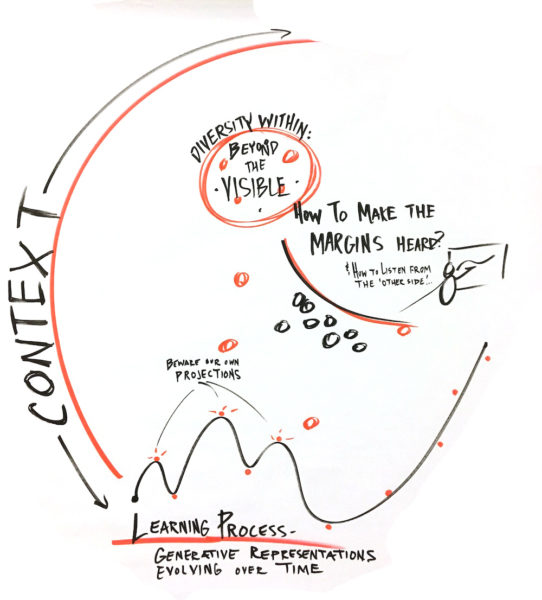 CONTEXT
DIVERSITY WITHIN:
BEYOND
THE
·VISIBLE·
HOW TO MAKE THE
MARGINS HEARD?
& HOW TO LISTEN FROM
THE 'OTHER SIDE'...
BEWARE OUR OWN
PROJECTIONS
LEARNING PROCESS-
GENERATIVE REPRESENTATIONS
EVOLVING OVER TIME